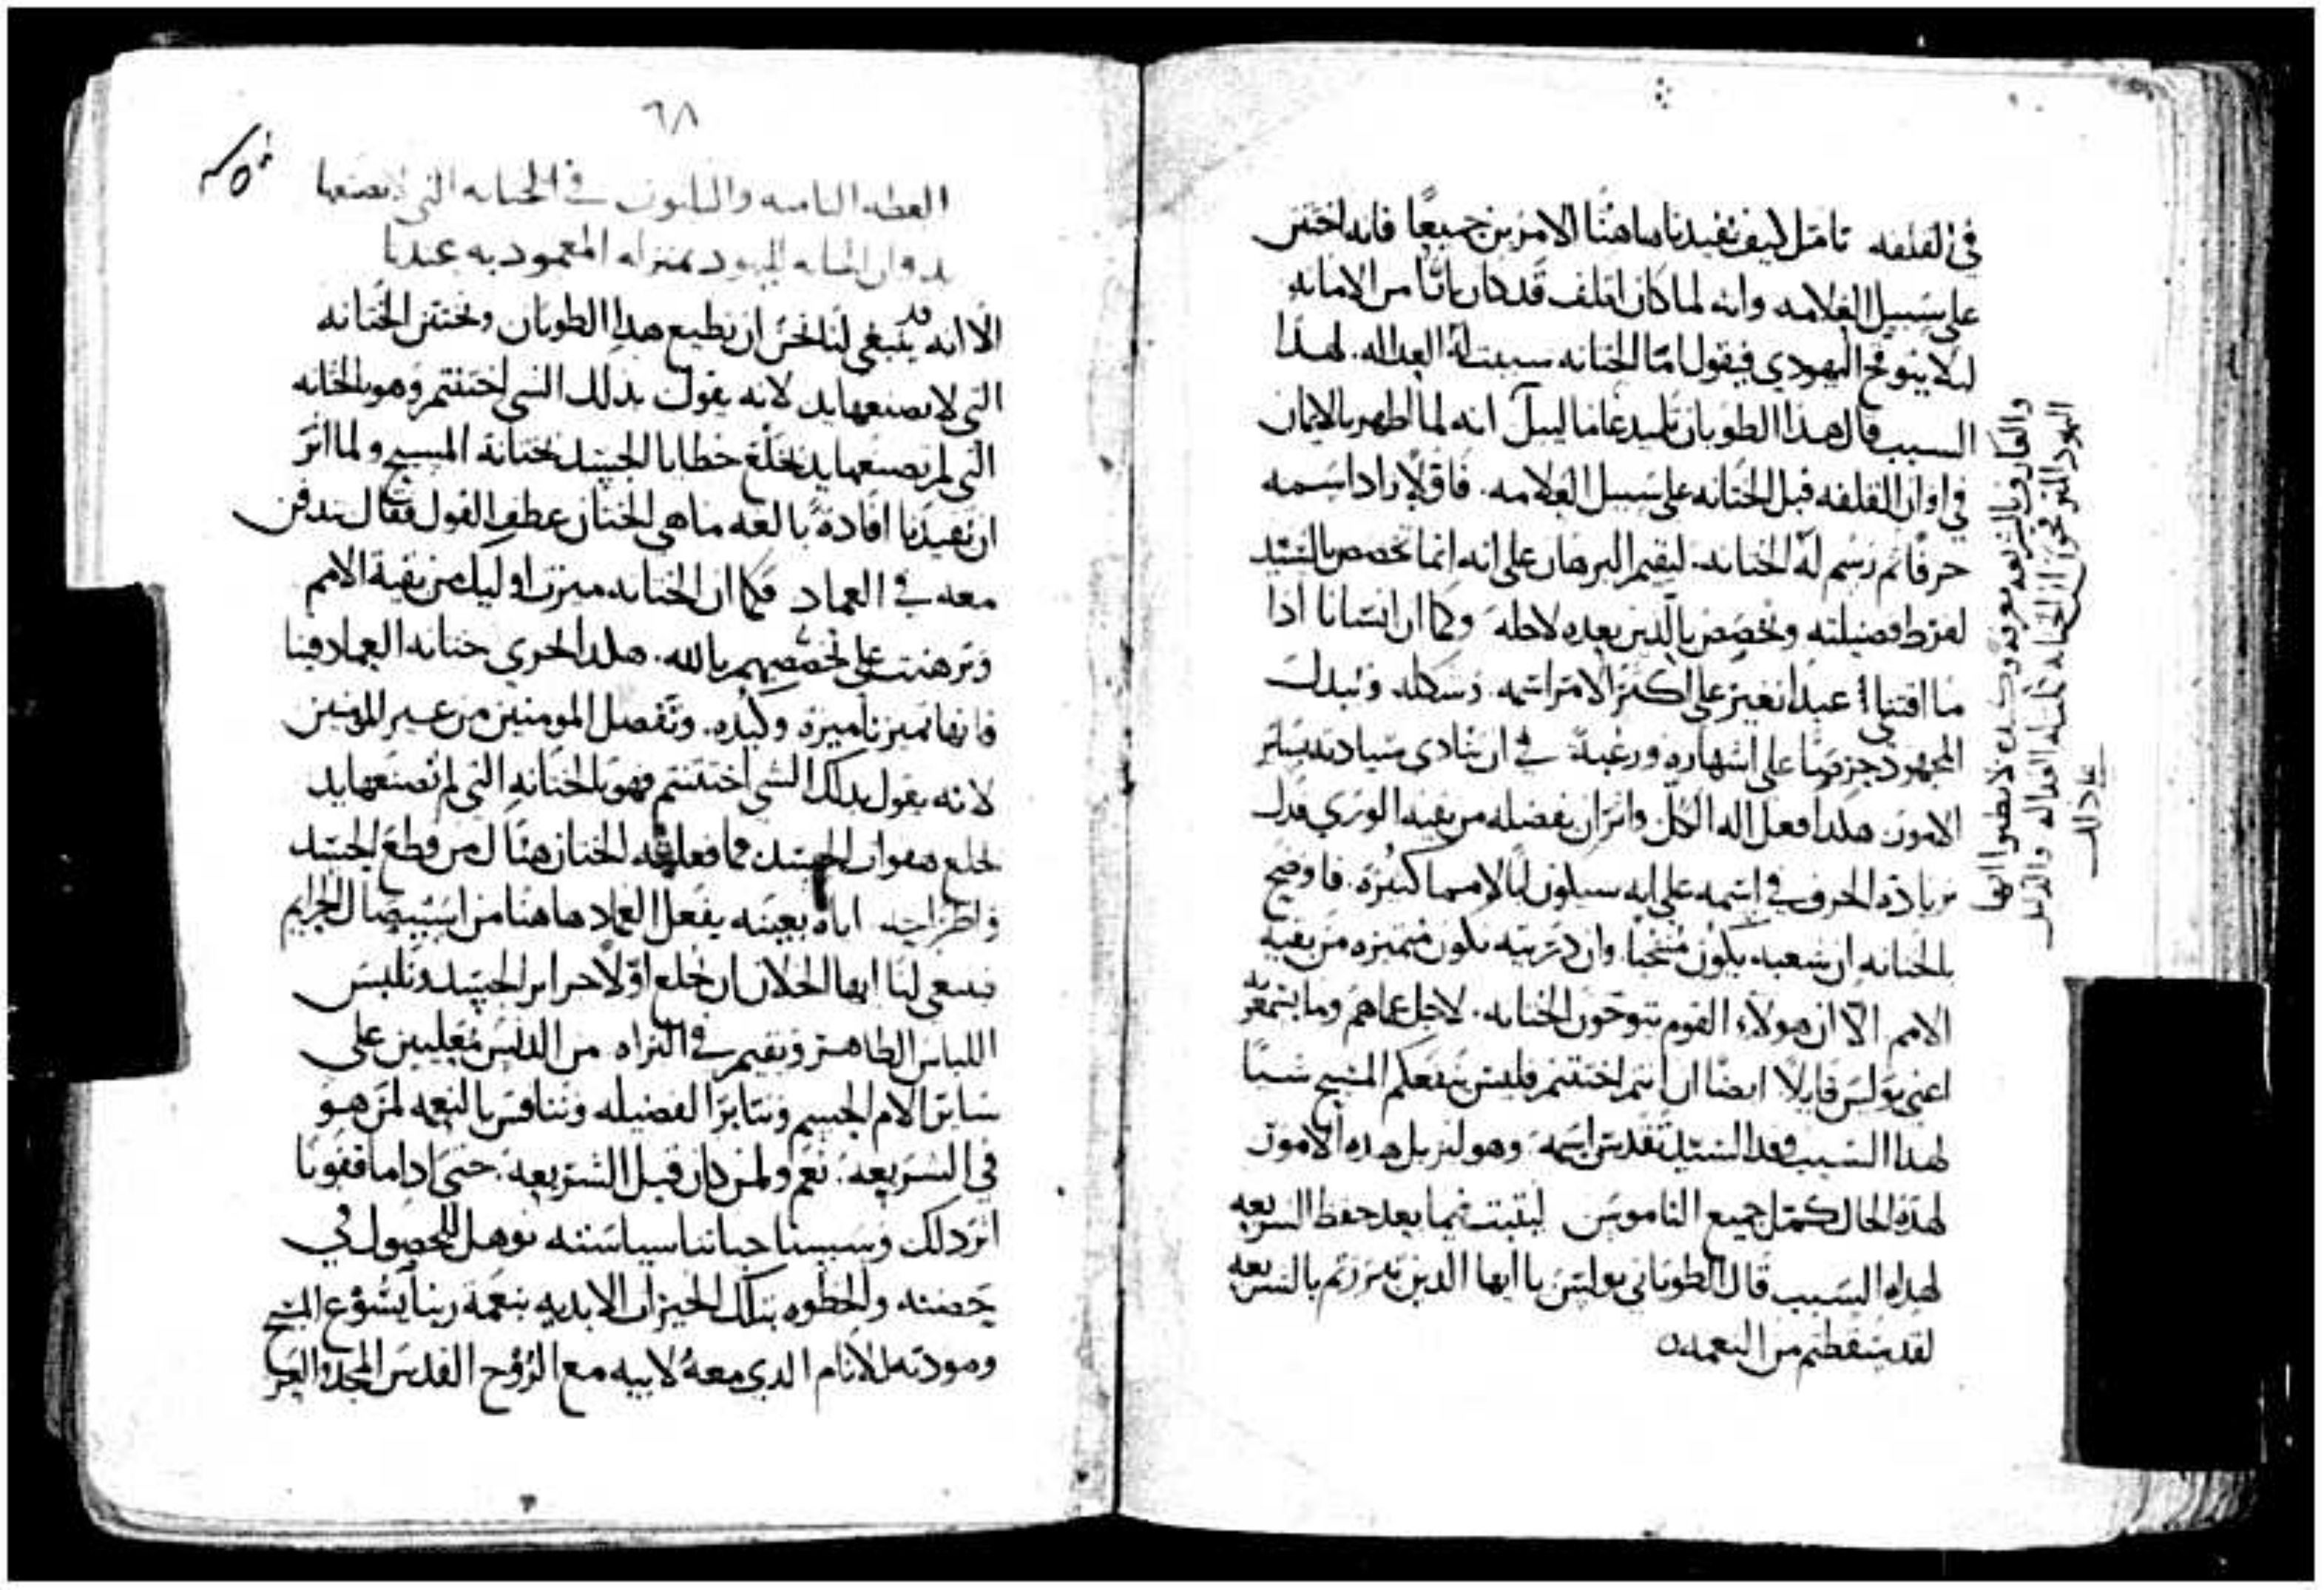 في القلفه تامل كيف تفيدنا هاهنا الامرين جميعًا فانه اختتن
على سبيل العلامه وانه لما كان اقلف قد كان باتًا من الامانه
ليلا يتوقح اليهودي فيقول اما الختانه سببت له العداله. لهذا
السبب قال هذا الطوبان انه لما اطهر بالايمان
في اوان القلفه قبل الختانه على سبيل العلامه. فاولًا زاد اسمه
حرفًا ثم رسم له الختانه. ليقيم البرهان على انه انما تخصص بالسيد
لفرط فضيلته وتخصص بالذين بعده لاجله وكما ان انسانا اذا
ما اقتنى عبدًا يغير على اكثر الامر اسمه وشكله ويبدل
المجهود حرصًا على اشهاره ورغبة في ان ينادي سيادته بسائر
الامور هكذا فعل اله الكل واثر ان يفضله من بقية الوري فدل
بزيادة الحرف في اسمه على انه سيكون ابًا لامم كثيره. فاوضح
بالختانه ان شعبه يكون منتخبًا وان ذريته تكون متميزه من بقية
الامم الا ان هولاء القوم يتوخون الختانه. لاجل عماهم وما
اعني بولس قايلًا ايضًا ان انتم اختتنتم فليس ينفعكم المسيح شيًا
لهذا السبب السيد تقدس اسمه وهو لنزيل هذه الامور
لهذه الحال كمثل جميع الناموس ليثبت فيما بعد حفظ الشريعه
لهذه السبب قال الطوباني بولس يا ايها الذين تبررتم بالشريعه
لقد سقطتم من النعمه
والعارفون بالشريعه لا تظنوا انها
اليهود الختانه العداله والدليل
على ذلك
٦٨
العظه الثامنه والثلثون في الختانه التي لا تصنعها
يد وان الختانه لليهود بمنزلة المعموديه عندنا
الا انه قد ينبغي لنا نحن ان نطيع هذا الطوبان ونختتن الختانه
التي لا تصنعها يد لانه يقول بذلك الشي اختتنتم وهو بالختانه
التي لم تصنعها يد بخلع خطايا الجسد بختانة المسيح ولما اثر
ان يفيدنا افادة بالغه ما هي الختان عطف القول فقال ندفن
معه في العماد فكما ان الختانه ميزت اوليك من بقية الامم
وبرهنت على تخصصهم بالله. هكذا الحري ختانه العماد فينا
فانها تميزنا ميزة وكيده. وتفصل المومنين من غير المومنين
لانه يقول بذلك الشي اختتنتم فهو بالختانه التي لم تصنعها يد
بخلع هفوات الجسد فما فعله الختان هنالك من قطع الجسد
واطراحه اياه بعينه يفعل العماد هاهنا من استيصال الجرايم
ينبغي لنا ايها الخلان ان نخلع اولًا الجسد ونلبس
اللباس الطاهر ونقيم في النزاه من الدنس مُعلين على
ساير الام الجسم ونتابر الفضيله ونتنافس بالنعمه لمن هو
في الشريعه. نعم ولمن كان قبل الشريعه. حتى اذا ما قفونا
اثر ذلك وسسنا حياتنا سياسته نوهل للحصول في
حضنه والحظوه بتلك الخيرات الابديه بنعمة ربنا يسوع المسيح
ومودته للانام الذي معه لابيه مع الروح القدس المجد والعز